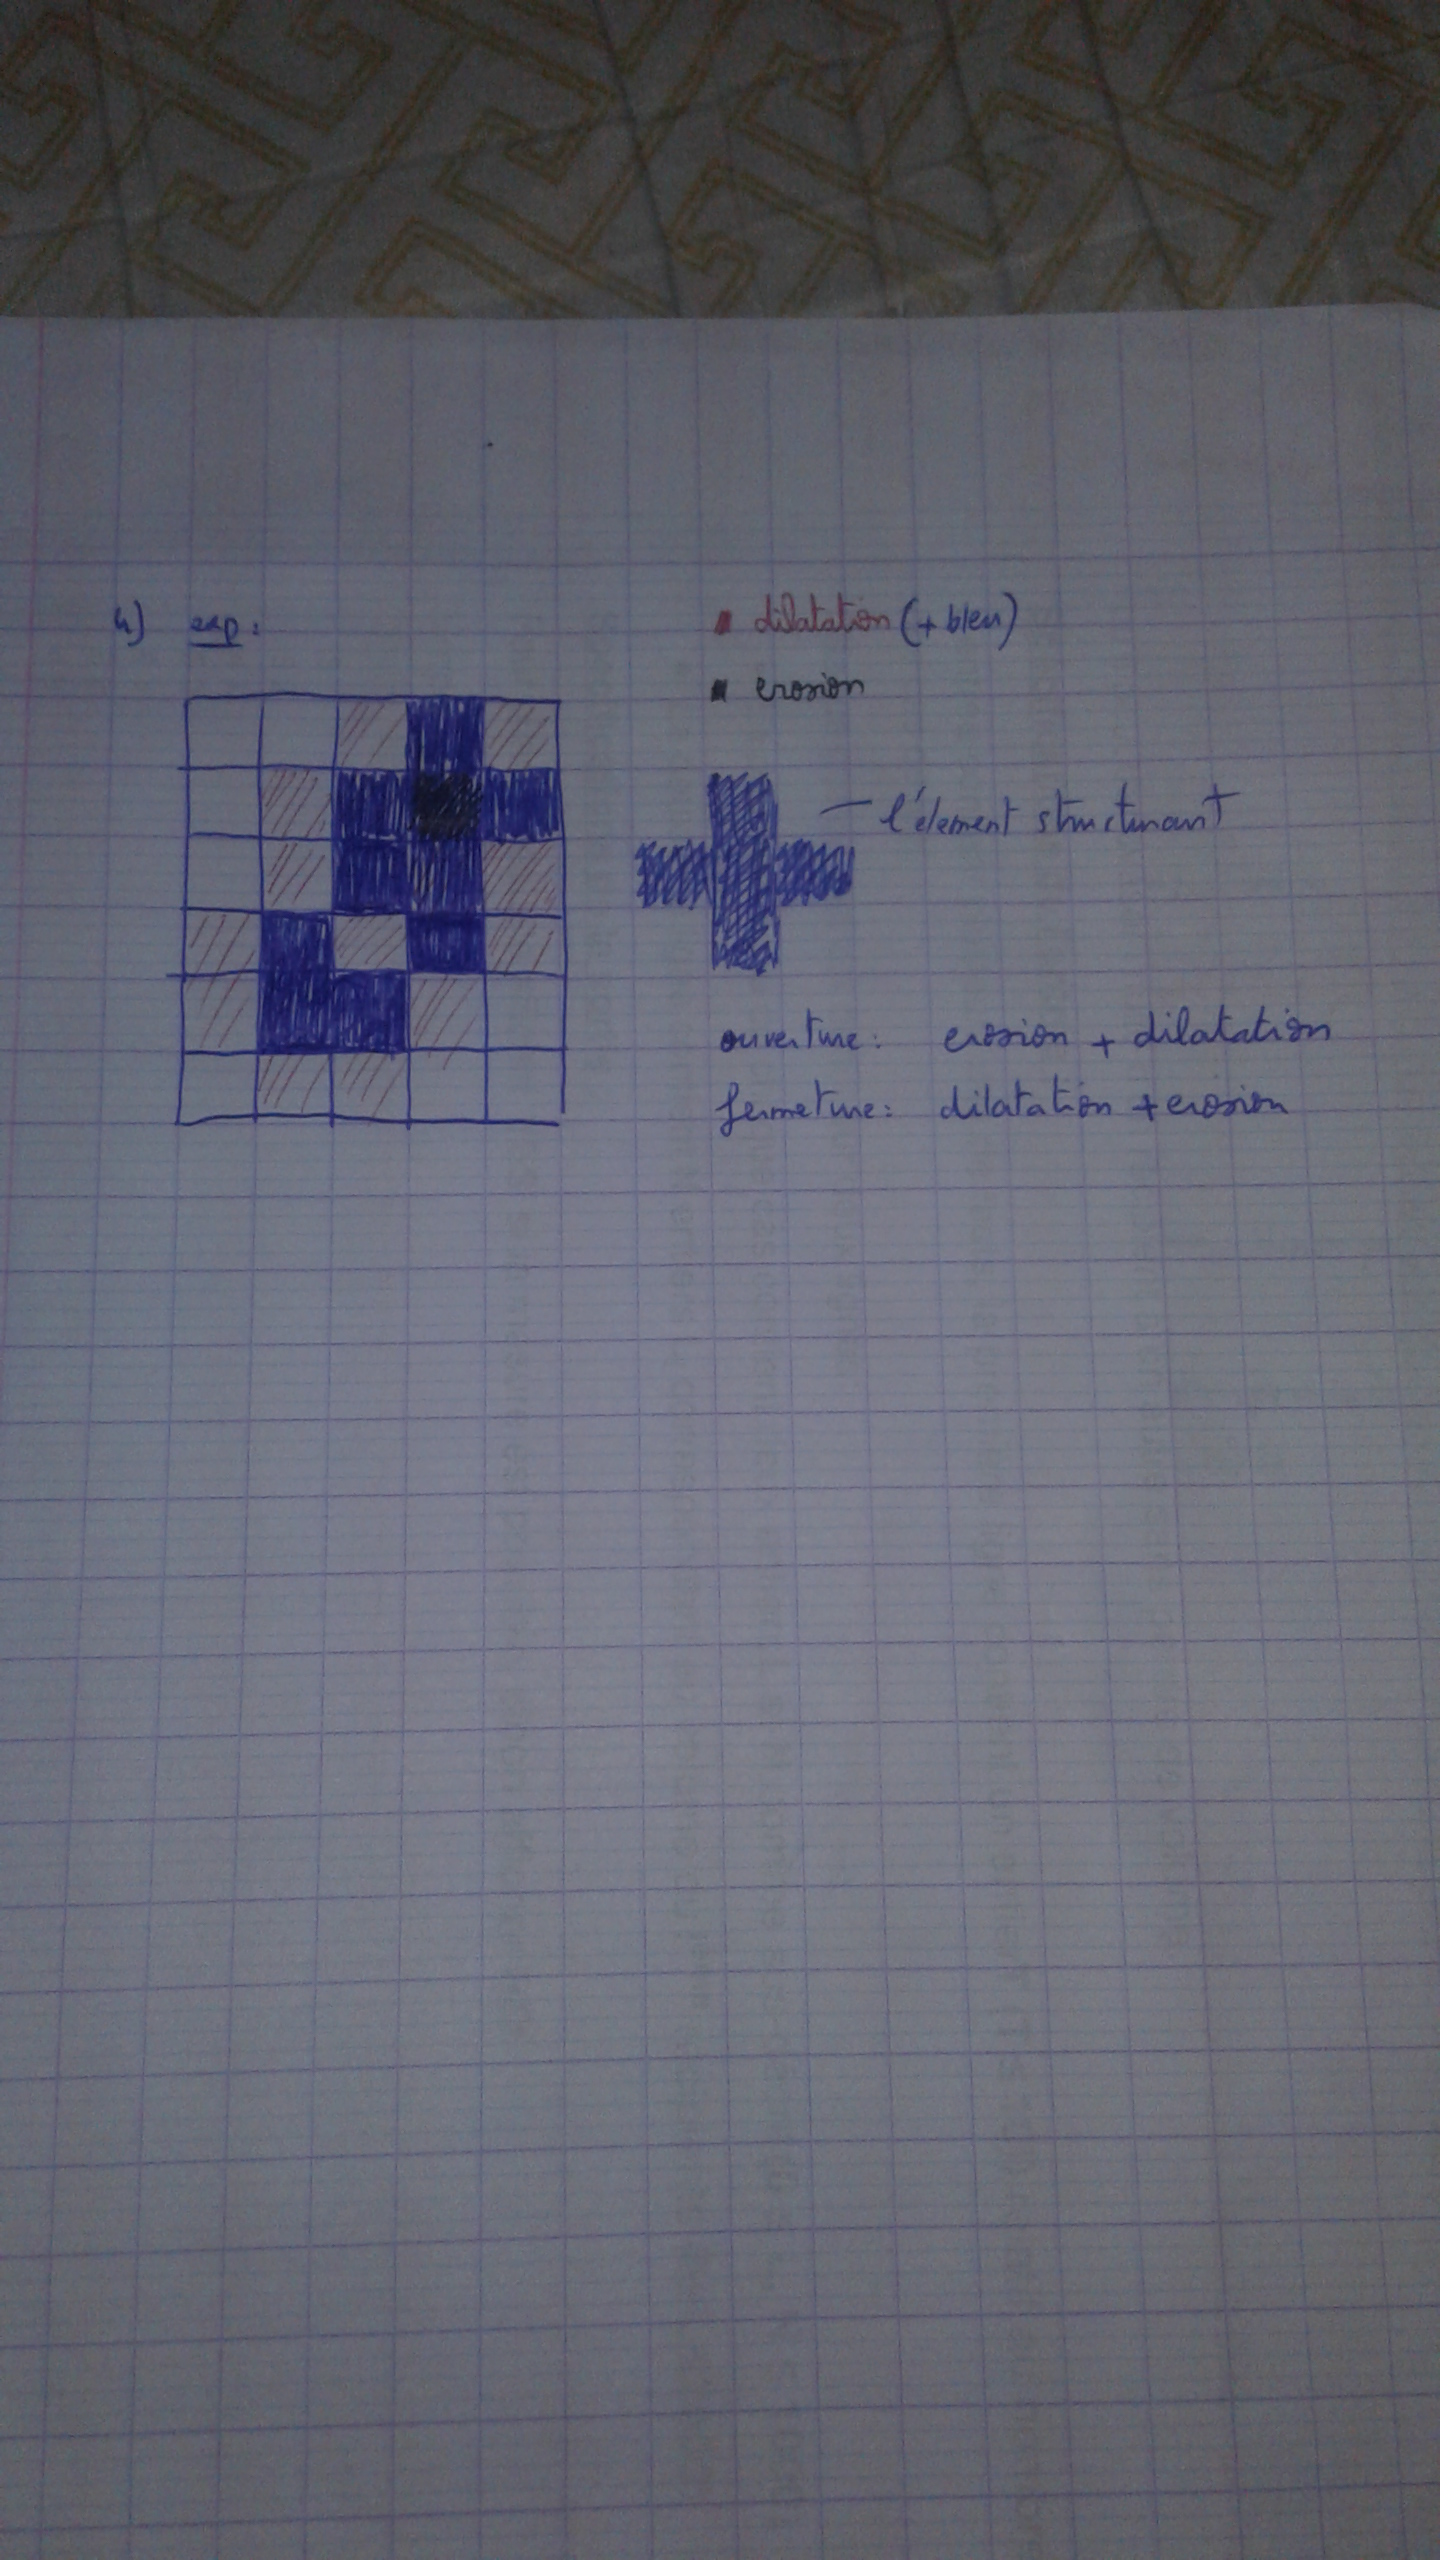 4) exp:
dilatation (+ bleu)
erosion
l'élement structurant
ouverture: erosion + dilatation
fermeture: dilatation + erosion